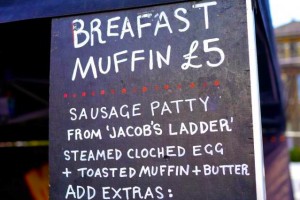 BREAFAST
MUFFIN £5
SAUSAGE PATTY
FROM 'JACOB'S LADDER'
STEAMED CLOCHED EGG
+ TOASTED MUFFIN + BUTTER
ADD EXTRAS: